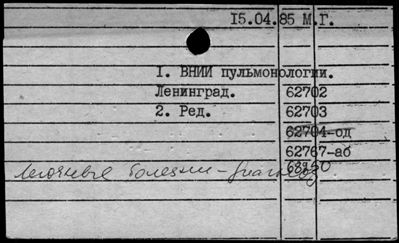 15.04.85 М.Г.
1. ВНИИ пульмонологии.
Ленинград. 62702
2. Ред. 62703
62704-од
62767-аб
68950
легочные болезни-диагноз